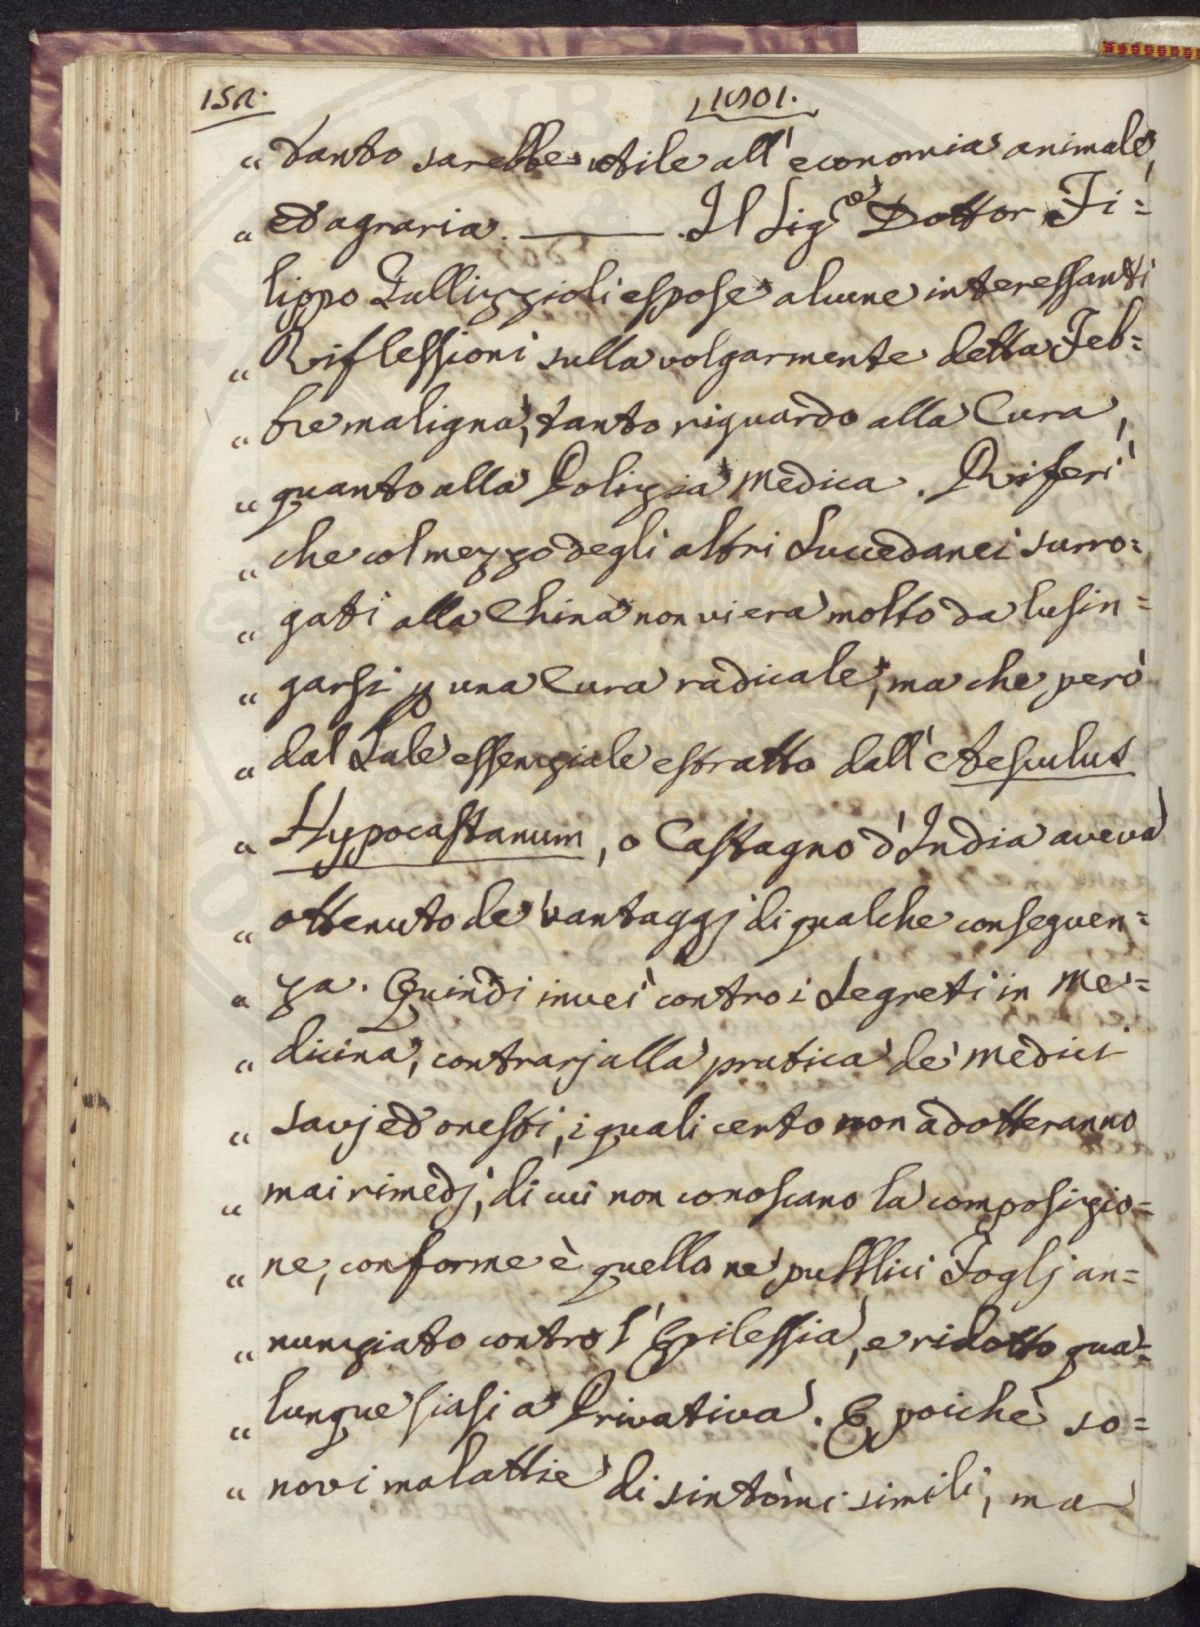 152. 1801.
" tanto sarebbe utile all' economia animale,
" ed agraria. ——— Il Sig.re Dottor Fi=
lippo Gallizzioli espose alcune interessanti
" Riflessioni sulla volgarmente detta Feb=
" bre maligna, tanto riguardo alla Cura,
" quanto alla Polizia Medica. Riferì
" che col mezzo degli altri Succedanei surro=
" gati alla China non vi era molto da lusin=
" garsi p una Cura radicale, ma che però
" dal Sale essenziale estratto dall' Aesculus
" Hypocastanum, o Castagno d'India aveva
" ottenuto de' vantaggj di qualche conseguen=
" za. Quindi inveì contro i Segreti in Me=
" dicina, contrarj alla pratica de' Medici
" savj ed onesti, i quali certo non adotteranno
" mai rimedj, di cui non conoscano la composizio=
" ne, conforme è quello ne' pubblici Foglj an=
" nunziato contro l' Epilessia, e ridotto qua=
" lunque siasi a Privativa. E poichè so=
" novi malattie di sintòmi simili, ma